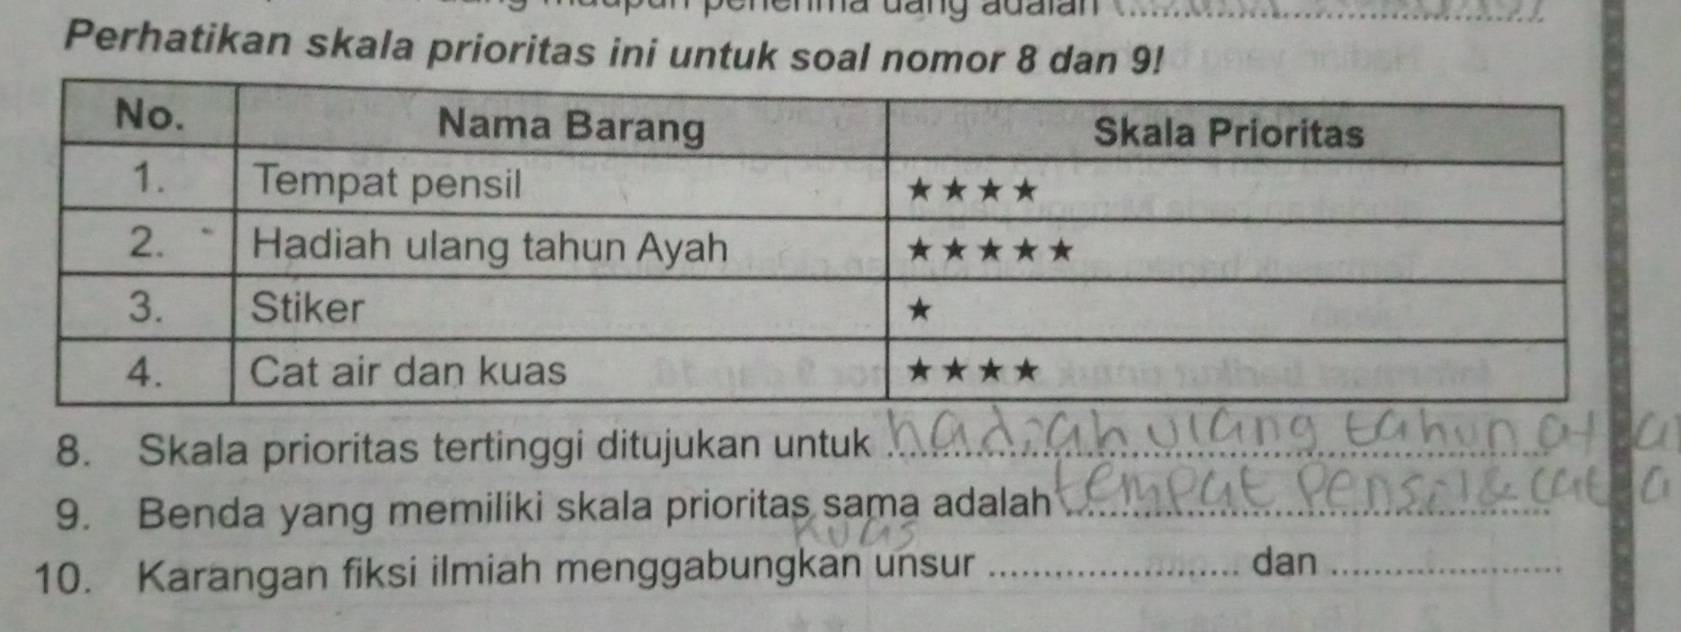 penerima uang adalah
Perhatikan skala prioritas ini untuk soal nomor 8 dan 9!
No. Nama Barang Skala Prioritas
1. Tempat pensil ★★★★
2. Hadiah ulang tahun Ayah ★★★★★
3. Stiker ★
4. Cat air dan kuas ★★★★
8. Skala prioritas tertinggi ditujukan untuk hadiah ulang tahun
9. Benda yang memiliki skala prioritas sama adalah tempat pensil & cat a
kuas
10. Karangan fiksi ilmiah menggabungkan unsur .................... dan ....................